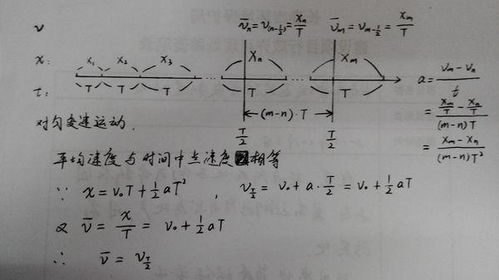 v
v̄ₙ = v₍ₙ₋½₎ = xₙ/T
v̄ₘ = vₘ₋½ = xₘ/T
x: x₁ x₂ x₃ ... Xₙ ... Xₘ
t: T T T ... T ... T
(m-n)·T
T/2 T/2
a = (vₘ - vₙ)/t
= (xₘ/T - xₙ/T)/((m-n)T)
= (xₘ - xₙ)/((m-n)T²)
对匀变速运动.
平均速度与时间中点速度相等
∵ x = v₀T + ½aT² , v_T/2 = v₀ + a·T/2 = v₀ + ½aT
又 v̄ = x/T = v₀ + ½aT
∴ v̄ = v_T/2